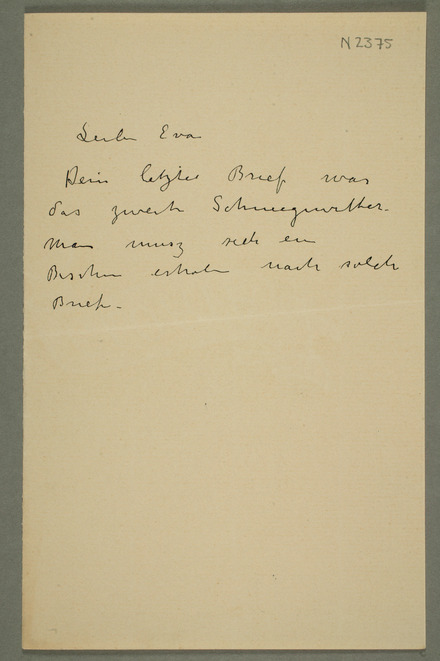 N 2375
Liebe Eva
Dein letzter Brief war
das zweite Schneegewitter.
Man musz sich ein
Bischen erholen nach solch
Brief.